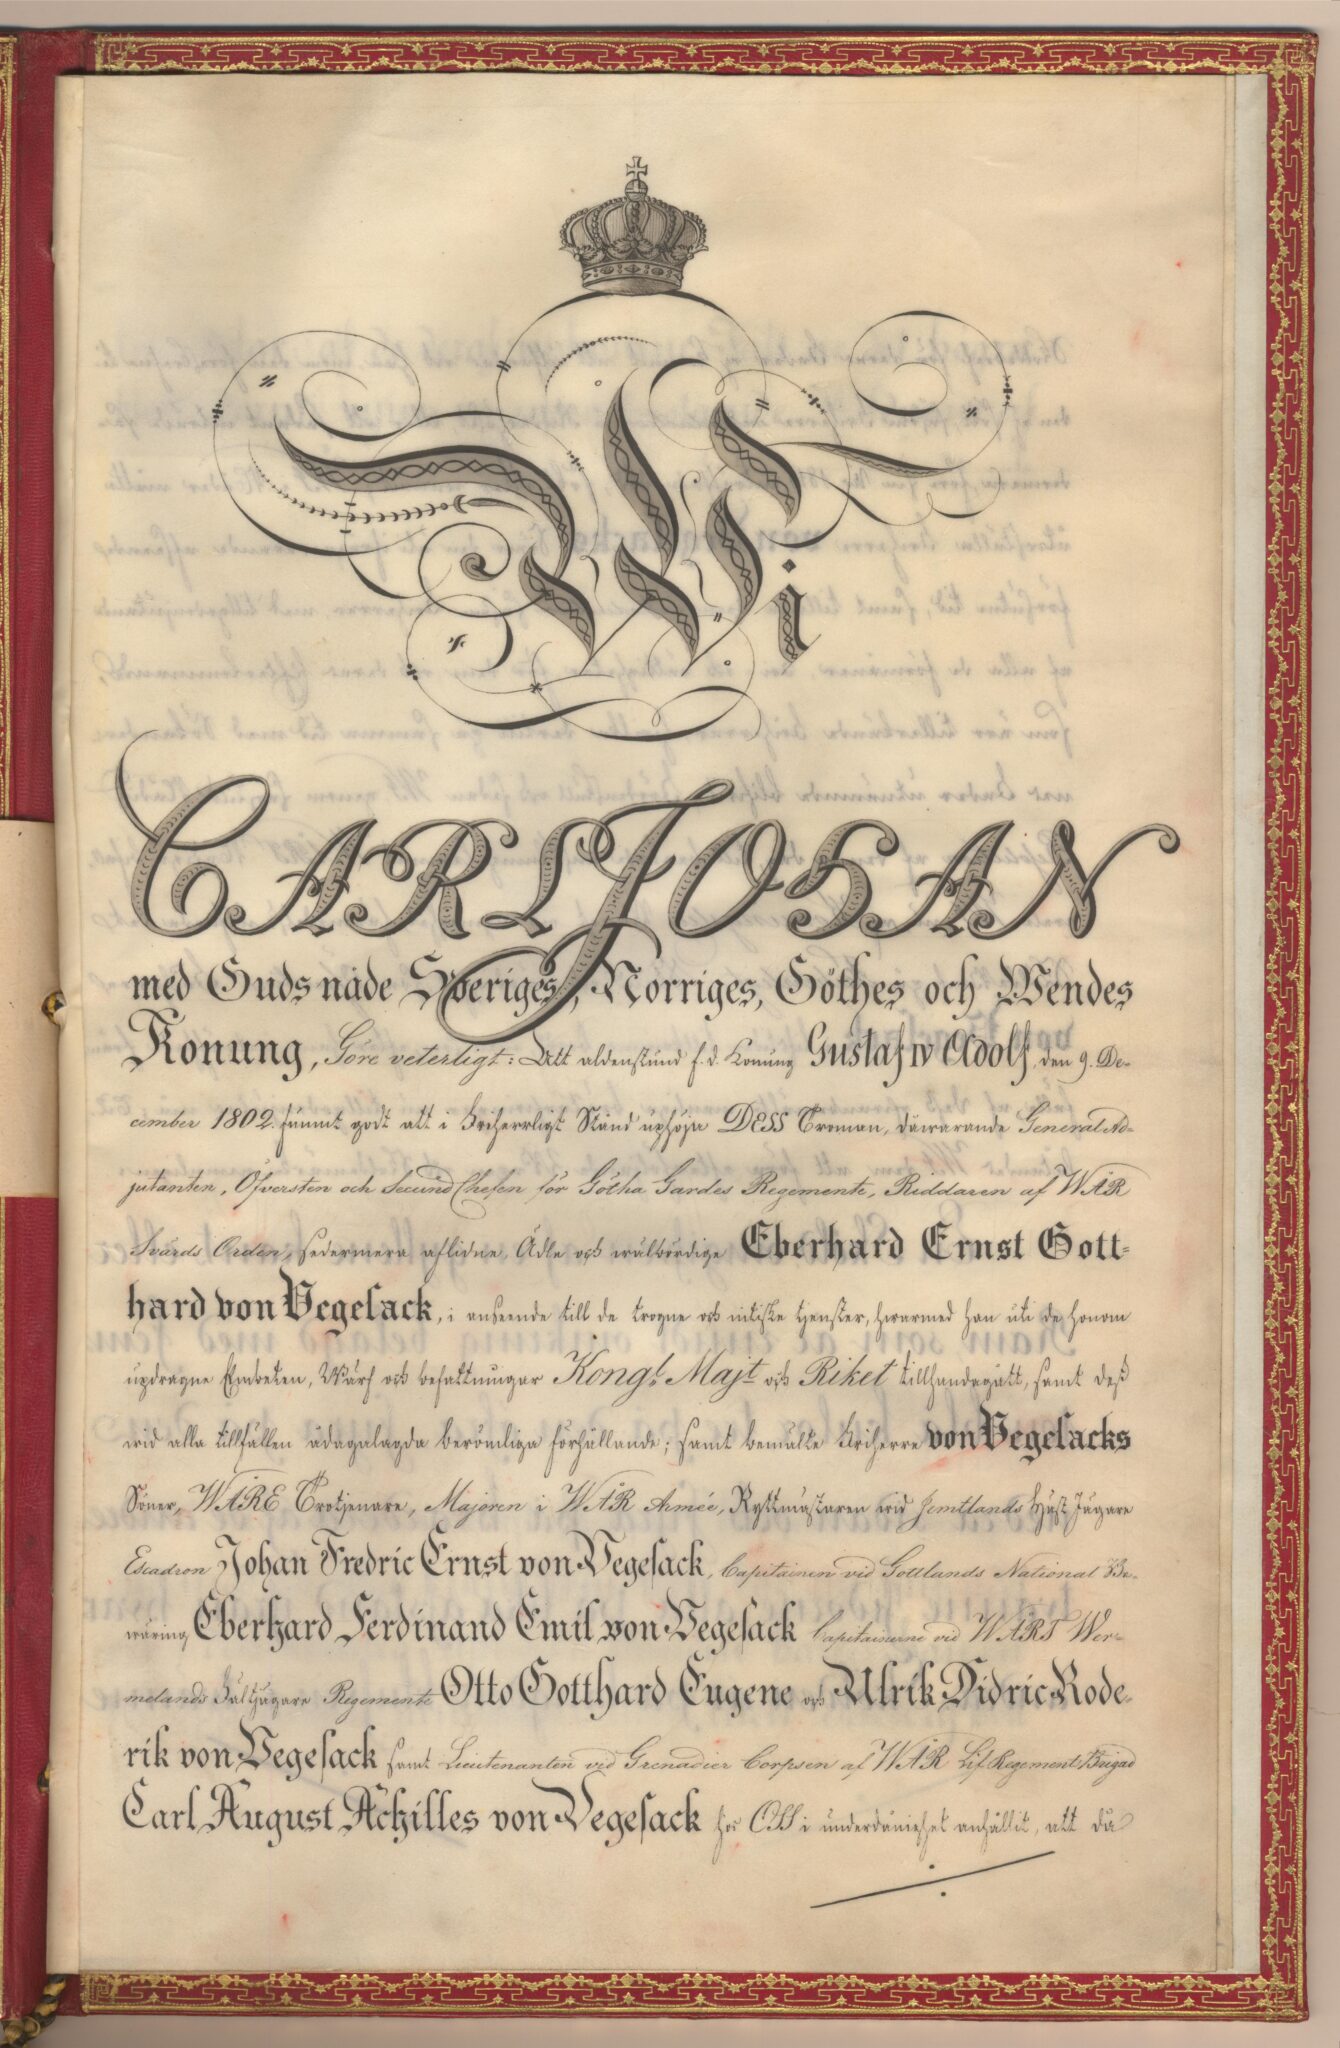 Wi
CARL JOHAN
med Guds nåde Sveriges, Norriges, Göthes och Wendes
Konung, Göre veterligt: Att aldenstund f.d. Konung Gustaf IV Adolf, den 9. De-
cember 1802. funnit godt att i Friherrligt Stånd uphöja DESS Troman, dåwarande General Ad-
jutanten, Öfversten och Second Chefen för Götha Gardes Regemente, Riddaren af WÅR
Svärds Orden, sedermera aflidne, Ädle och wälbördige Eberhard Ernst Gott-
hard von Vegesack, i anseende till de trogne och nitiske tjenster, hwarmed han uti de honom
updragne Embeten, Wärf och befattningar Kongl. Majt och Riket tillhandagått, samt deß
wid alla tillfällen ådagalagda berömliga förhållande; samt bemälte Friherre von Vegesacks
Söner, WÅRE Trotjenare, Majoren i WÅR Armée, Ryttmästaren wid Jemtlands Häst Jägare
Escadron Johan Fredric Ernst von Vegesack, Capitainen vid Gottlands National Be-
wäring Eberhard Ferdinand Emil von Vegesack Capitainerne vid WÅRT Wer-
melands Fältjägare Regemente Otto Gotthard Eugene och Ulrik Didric Rode-
rik von Vegesack samt Lieutenanten vid Grenadier Corpsen af WÅR Lif Regements Brigad
Carl August Achilles von Vegesack hos OSS i underdånighet anhållit, att då